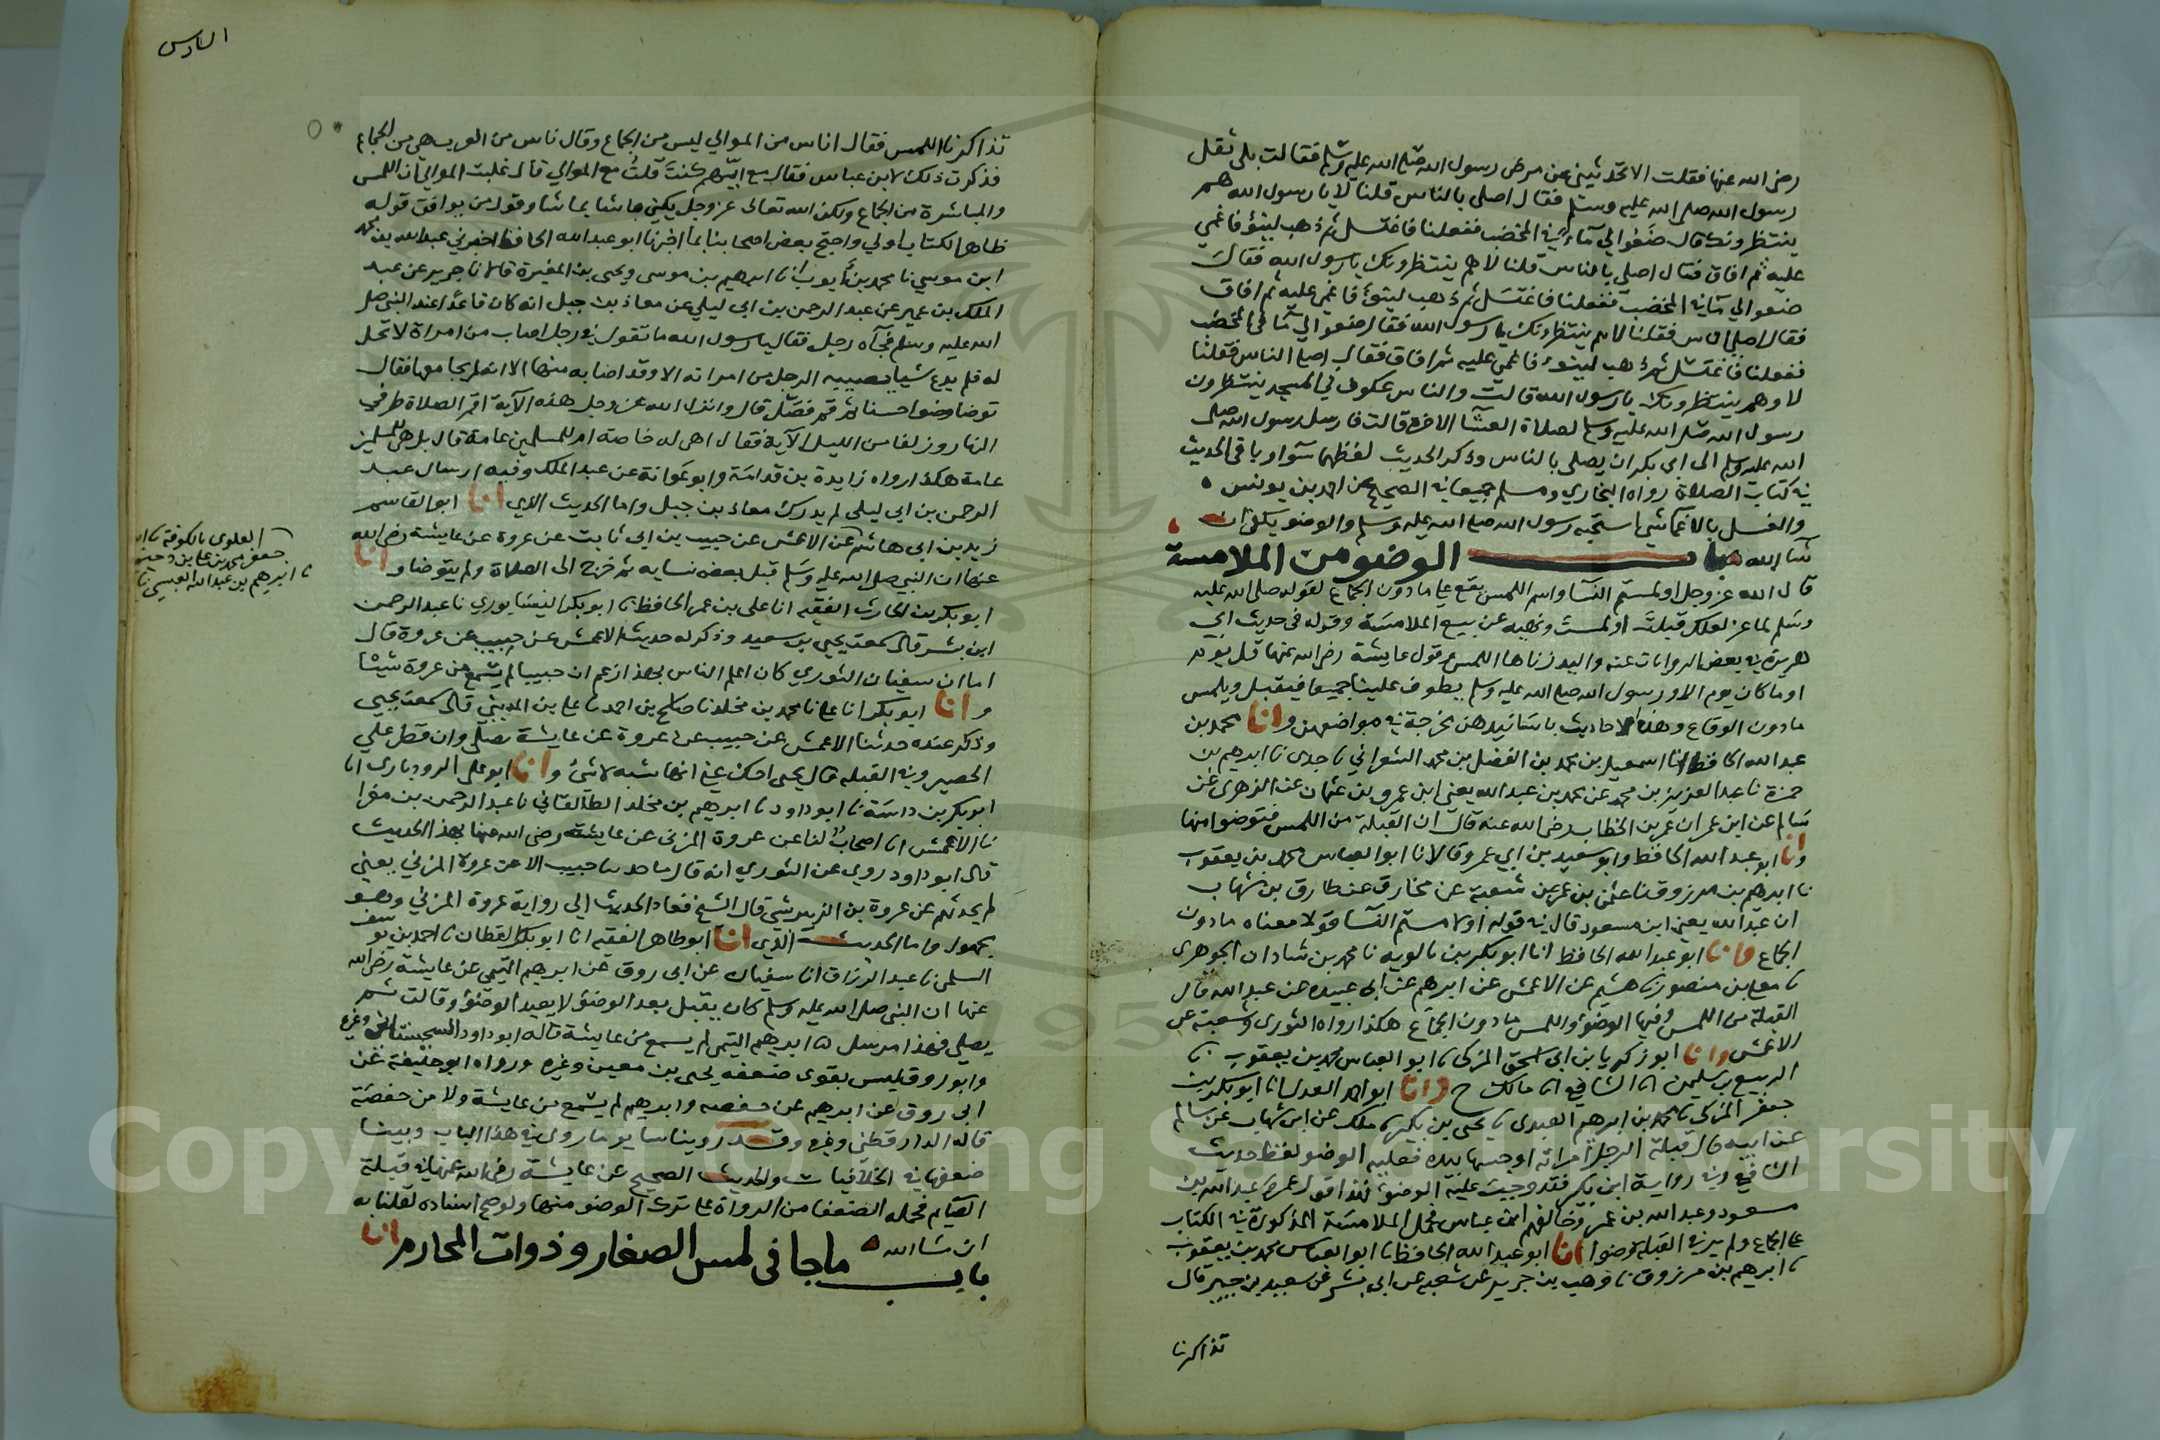 رضى الله عنها فقلت الا تحدثيني عن مرض رسول الله صلى الله عليه وسلم فقالت بلى ثقل
رسول الله صلى الله عليه وسلم فقال اصلى بالناس قلنا لا يا رسول الله هم
ينتظرونك قال ضعوا لي ماء في المخضب ففعلنا فاغتسل ثم ذهب لينوء فاغمي
عليه ثم افاق فقال اصلى بالناس قلنا لا هم ينتظرونك يا رسول الله فقال
ضعوا لي ماء في المخضب ففعلنا فاغتسل ثم ذهب لينوء فاغمي عليه ثم افاق
فقال اصلى الناس فقلنا لا هم ينتظرونك يا رسول الله فقال ضعوا لي ماء في المخضب
ففعلنا فاغتسل ثم ذهب لينوء فاغمي عليه ثم افاق فقال اصلى الناس فقلنا
لا وهم ينتظرونك يا رسول الله قالت والناس عكوف في المسجد ينتظرون
رسول الله صلى الله عليه وسلم لصلاة العشا الاخرة قالت فارسل رسول الله صلى
الله عليه وسلم الى ابي بكر ان يصلى بالناس وذكر الحديث لفظهما سوا وباقي الحديث
في كتاب الصلاة رواه البخاري ومسلم جميعا في الصحيح عن احمد بن يونس
والغسل بالاغما شي استحبه رسول الله صلى الله عليه وسلم والوضو يكفي ان
شا الله باب الوضو من الملامسة
قال الله عز وجل او لمستم النسا واسم اللمس يقع على ما دون الجماع لقوله صلى الله عليه
وسلم لماعز لعلك قبلت او لمست ونهيه عن بيع الملامسة وقوله في حديث ابي
هريرة في بعض الروايات عنه واليد زناها اللمس وقول عايشة رضى الله عنها قل يوم
او ما كان يوم الا ورسول الله صلى الله عليه وسلم يطوف علينا جميعا فيقبل ويلمس
ما دون الوقاع وهذه الاحاديث باسانيدهن مخرجة في مواضعهن وانا محمد بن
عبد الله الحافظ انا اسمعيل بن محمد بن الفضل بن محمد الشعراني نا جدي نا ابرهيم بن
حمزة نا عبد العزيز بن محمد عن محمد بن عبد الله يعني ابن عمرو بن عثمان عن الزهرى عن
سالم عن ابن عمر ان عمر بن الخطاب رضى الله عنه قال ان القبلة من اللمس فتوضوا منها
وانا ابو عبد الله الحافظ وابو سعيد بن ابي عمرو قالا نا ابو العباس محمد بن يعقوب
نا ابرهيم بن مرزوق نا عثمن بن عمر عن شعبة عن مخارق عن طارق بن شهاب
ان عبد الله يعني ابن مسعود قال في قوله او لامستم النسا قولا معناه ما دون
الجماع وانا ابو عبد الله الحافظ انا ابو بكر بن بالويه نا محمد بن شاذان الجوهرى
نا معلى بن منصور نا هشيم عن الاعمش عن ابرهيم عن ابي عبيدة عن عبد الله قال
القبلة من اللمس وفيها الوضو واللمس ما دون الجماع هكذا رواه الثورى وشعبة عن
الاعمش وانا ابو زكريا بن ابي اسحق المزكى نا ابو العباس محمد بن يعقوب نا
الربيع بن سليمن انا الشافعي انا مالك ح وانا ابو احمد العدل انا ابو بكر بن
جعفر المزكى نا محمد بن ابرهيم العبدى نا يحيى بن بكير نا ملك عن ابن شهاب عن سالم
عن ابيه قال قبلة الرجل امراته او جسها بيده فعليه الوضو لفظ حديث
الشافعي وفي رواية ابن بكير فقد وجب عليه الوضو فهذا قول عمر وعبد الله بن
مسعود وعبد الله بن عمر وخالفهم ابن عباس فحمل الملامسة المذكورة في الكتاب
على الجماع ولم ير في القبلة وضوا انا ابو عبد الله الحافظ نا ابو العباس محمد بن يعقوب
نا ابرهيم بن مرزوق نا وهب بن جرير عن شعبة عن ابي بشر عن سعيد بن جبير قال
تذاكرنا
السادس
تذاكرنا اللمس فقال اناس من الموالي ليس من الجماع وقال ناس من العرب هي من الجماع
فذكرت ذلك لابن عباس فقال مع ايهم كنت قلت مع الموالي قال غلبت الموالي ان اللمس
والمباشرة من الجماع ولكن الله تعالى عز وجل يكني ما شا بما شا وقول من يوافق قوله
ظاهر الكتاب اولي واحتج بعض اصحابنا بما اخبرنا ابو عبد الله الحافظ اخبرني عبد الله بن محمد
ابن موسي نا محمد بن ايوب انا ابرهيم بن موسى ويحيى بن المغيرة قالا نا جرير عن عبد
الملك بن عمير عن عبد الرحمن بن ابي ليلي عن معاذ بن جبل انه كان قاعدا عند النبي صلى
الله عليه وسلم فجآه رجل فقال يا رسول الله ما تقول في رجل اصاب من امراة لا تحل
له فلم يدع شيا يصيبه الرجل من امراته الا وقد اصابه منها الا انه لم يجامعها فقال
توضا وضوا حسنا ثم قم فصل قال وانزل الله عز وجل هذه الآية اقم الصلاة طرفي
النهار وزلفا من الليل الآية فقال اهي له خاصة ام للمسلمين عامة قال بل هي للمسلمين
عامة هكذا رواه زايدة بن قدامة وابو عوانة عن عبد الملك وفيه ارسال عبد
الرحمن بن ابي ليلى لم يدرك معاذ بن جبل واما الحديث الذي انا ابو القاسم
زيد بن ابي هاشم عن الاعمش عن حبيب بن ابي ثابت عن عروة عن عايشة رضى الله
عنها ان النبي صلى الله عليه وسلم قبل بعض نسايه ثم خرج الى الصلاة ولم يتوضا وانا
ابو بكر بن الحارث الفقيه انا على بن عمر الحافظ نا ابو بكر النيسابوري نا عبد الرحمن
ابن بشر قال سمعت يحيى بن سعيد وذكر له حديث الاعمش عن حبيب عن عروة قال
اما ان سفيان الثوري كان اعلم الناس بهذا زعم ان حبيبا لم يسمع من عروة شيئا
وانا ابو بكر انا على نا محمد بن مخلد نا صالح بن احمد نا على بن المديني قال سمعت يحيى
وذكر عنده حدثنا الاعمش عن حبيب عن عروة عن عايشة تصلي وان قطر علي
الحصير وفي القبلة قال يحيى احك عني انهما شبه لا شئ وانا ابو على الروذبارى انا
ابو بكر بن داسة نا ابو داود نا ابرهيم بن مخلد الطالقاني نا عبد الرحمن بن مغرا
نا الاعمش انا اصحاب لنا عن عروة المزنى عن عايشة رضى الله عنها بهذا الحديث
قال ابو داود روي عن الثوري انه قال ما حدثنا حبيب الا عن عروة المزني يعني
لم يحدثهم عن عروة بن الزبير بشي قال الشيخ فعاد الحديث الى رواية عروة المزني وهو
مجهول واما الحديث الذي انا ابو طاهر الفقيه انا ابو بكر القطان نا احمد بن يوسف
السلمى نا عبد الرزاق انا سفيان عن ابي روق عن ابرهيم التيمي عن عايشة رضى الله
عنها ان النبي صلى الله عليه وسلم كان يقبل بعد الوضو لا يعيد الوضو وقالت ثم
يصلي فهذا مرسل ابرهيم التيمي لم يسمع من عايشة قاله ابو داود السجستاني وغيره
وابو روق ليس بقوى ضعفه يحيى بن معين وغيره ورواه ابو حنيفة عن
ابي روق عن ابرهيم عن حفصة وابرهيم لم يسمع من عايشة ولا من حفصة
قاله الدارقطني وغيره وقد روينا ساير ما روي في هذا الباب وبينا
ضعفها في الخلافيات والحديث الصحيح عن عايشة رضى الله عنها في قبلة
الصايم فحمله الضعفا من الرواة على ترك الوضو منها ولو صح اسناده لقلنا به
ان شا الله
باب ما جا في لمس الصغار وذوات المحارم انا
العلوى بالكوفة نا ابو
جعفر محمد بن على بن دحيم
نا ابرهيم بن عبد الله العبسي نا
Copyright © King Saud University
195